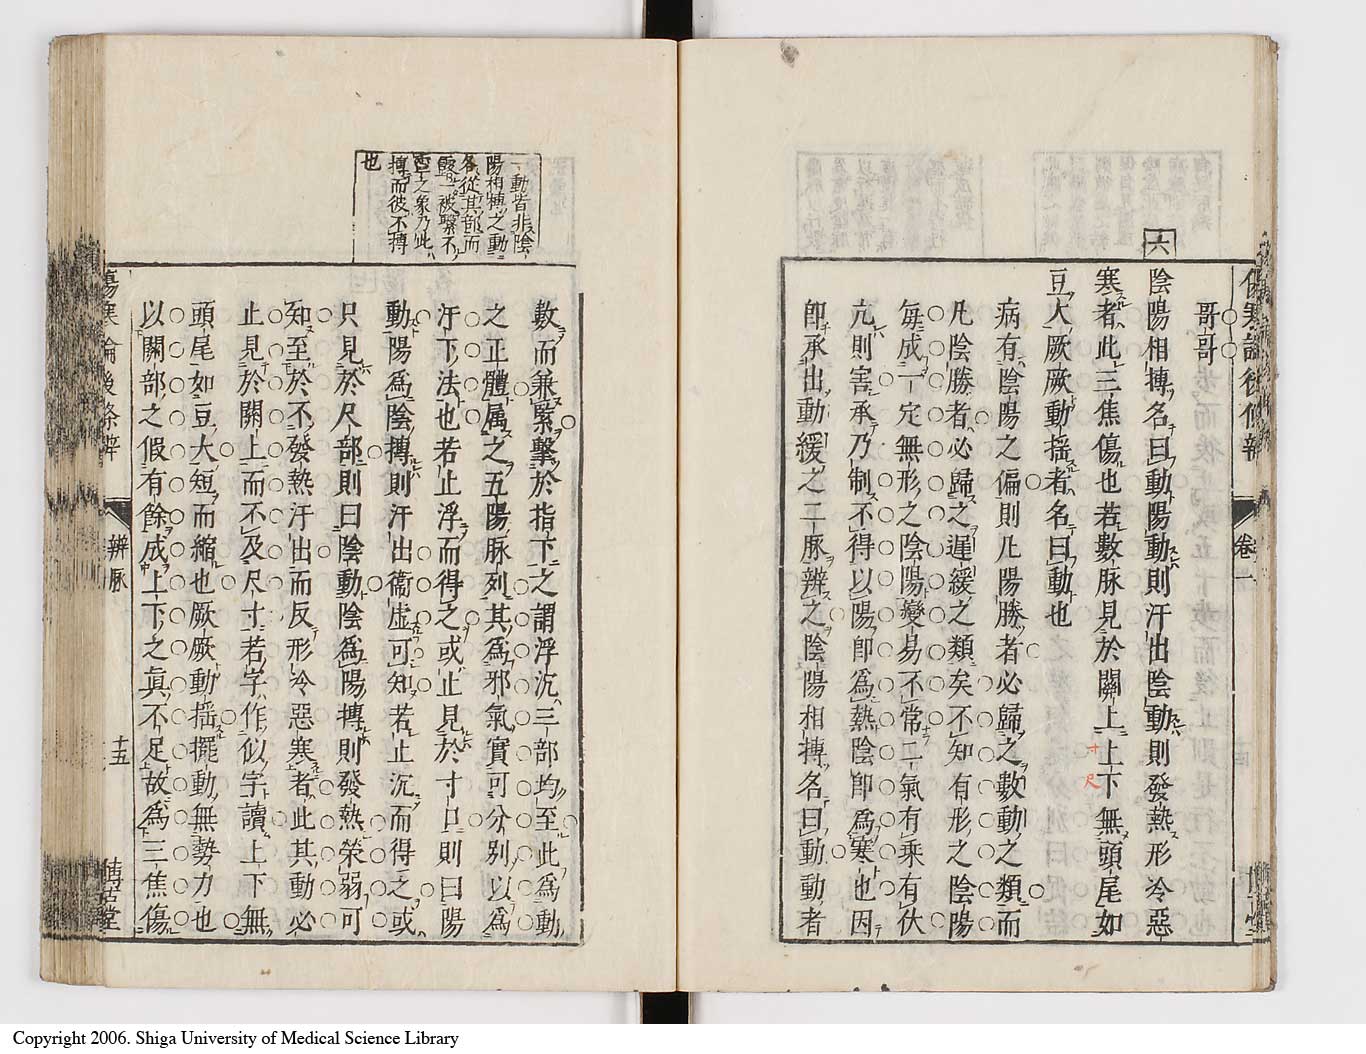 六
哥哥
陰陽相搏名曰動陽動則汗出陰動則發熱形冷惡
寒者此三焦傷也若數脉見於關上上下無頭尾如
寸
尺
豆大厥厥動搖者名曰動也
病有陰陽之偏則凡陽勝者必歸之數動之類而
凡陰勝者必歸之遲緩之類矣不知有形之陰陽
每成一定無形之陰陽變易不常二氣有乘有伏
亢則害承乃制不得以陽卽爲熱陰卽爲寒也因
卽承出動緩之二脉辨之陰陽相搏名曰動動者
卷一
一動皆非陰
陽相搏之動
各從其部而
搏而彼不搏
也
數而兼緊擊於指下之謂浮沉三部均至此爲動
之正體屬之五陽脉列其爲邪氣實可分別以爲
汗下法也若止浮而得之或止見於寸口則曰陽
動陽爲陰搏則汗出衞虛可知若止沉而得之或
只見於尺部則曰陰動陰爲陽搏則發熱榮弱可
知至於不發熱汗出而反形冷惡寒者此其動必
止見於關上而不及尺寸若字作似字讀上下無
頭尾如豆大短而縮也厥厥動搖擺動無勢力也
以關部之假有餘成上下之眞不足故爲三焦傷
傷寒論後條辨
辨脉
十五
Copyright 2006. Shiga University of Medical Science Library